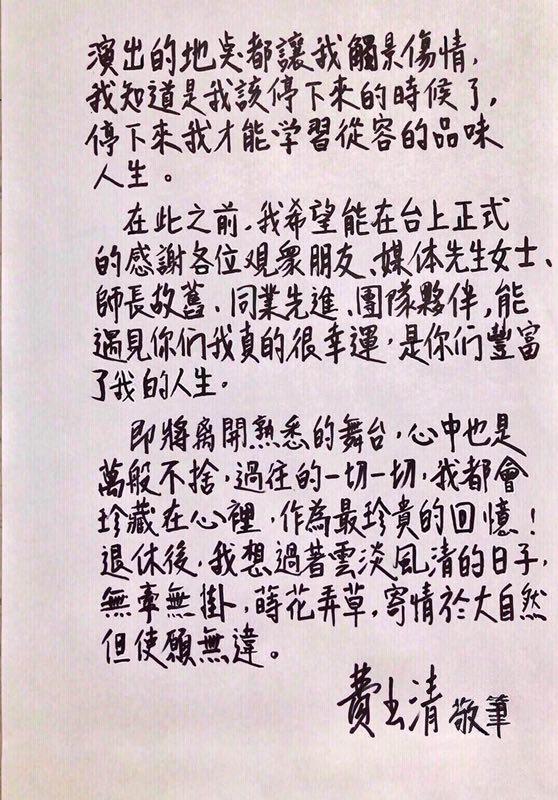 演出的地点都讓我觸景傷情,
我知道是我該停下來的時候了,
停下來我才能学習從容的品味
人生。
在此之前,我希望能在台上正式
的感謝各位观衆朋友、媒体先生女士、
師長故舊、同業先進、團隊夥伴,能
遇見你们我真的很幸運,是你们豐富
了我的人生.
即將离開熟悉的舞台,心中也是
萬般不捨,過往的一切一切,我都會
珍藏在心裡,作為最珍貴的回憶!
退休後,我想過著雲淡風清的日子,
無牽無掛,蒔花弄草,寄情於大自然
但使願無違。
費玉清 敬筆